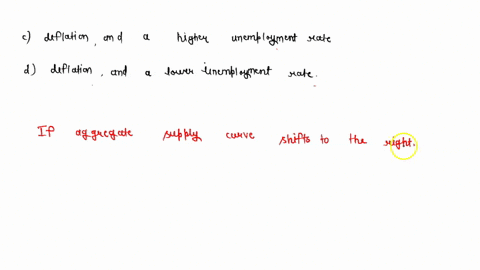 c) deflation, and a higher unemployment rate
d) deflation, and a lower unemployment rate.
If aggregate supply curve shifts to the right.